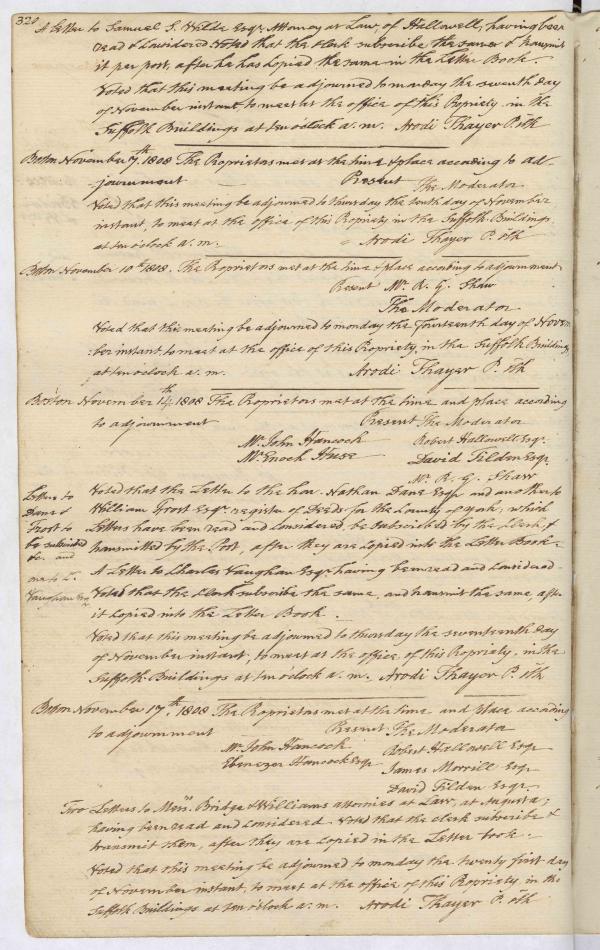 320
A Letter to Samuel S. Wilde Esqr. Attorney at Law, of Hallowell, having been
read & considered Voted that the clerk subscribe the same & transmit
it per post, after he has copied the same in the Letter Book.
Voted that this meeting be adjourned to monday the seventh day
of November instant, to meet at the office of this Propriety in the
Suffolk Buildings at ten oclock a. m. Arodi Thayer P. Clk
Boston November 7th. 1808 The Proprietors met at the time & place according to ad-
journment Present The Moderator
Voted that this meeting be adjourned to thursday the tenth day of November
instant, to meet at the office of this Propriety in the Suffolk Buildings
at ten o'clock a. m. Arodi Thayer P. Clk
Boston November 10th 1808. The Proprietors met at the time & place according to adjournment
Present Mr. R. G. Shaw
The Moderator
Voted that this meeting be adjourned to monday the fourteenth day of Novem
ber instant, to meet at the office of this Propriety, in the Suffolk Buildings
at ten oclock a. m. Arodi Thayer P. Clk
Boston November 14th 1808 The Proprietors met at the time and place according
to adjournment Present The Moderator
Mr. John Hancock Robert Hallowell Esqr.
Mr. Enoch Huse David Tilden Esqr.
Mr. R. G. Shaw
Letters to
Dane &
Frost to
be subscribed
&c. and
one to C.
Vaughan Esqr
Voted that the Letter to the hon. Nathan Dane Esqr and another to
William Frost Esqr. register of Deeds for the County of York, which
Letters have been read and considered, be subscribed by the Clerk, &
transmitted by the Post, after they are copied into the Letter Book.
A Letter to Charles Vaughan Esqr. having been read and considered
Voted that the Clerk subscribe the same, and transmit the same, after
it copied into the Letter Book.
Voted that this meeting be adjourned to thursday the seventeenth day
of November instant, to meet at the office of this Propriety, in the
Suffolk Buildings at ten o'clock a. m. Arodi Thayer P. Clk
Boston November 17th. 1808 The Proprietors met at the time and place according
to adjournment Present The Moderator
Mr. John Hancock Robert Hallowell Esqr
Ebenezer Hancock Esqr James Morrill Esqr
David Tilden Esqr.
Two Letters to Messrs. Bridge & Williams attornies at Law, at Augusta,
having been read and considered Voted that the clerk subscribe &
transmit them, after they are copied in the Letter book.
Voted that this meeting be adjourned to monday the twenty first day
of November instant, to meet at the office of this Propriety in the
Suffolk Buildings at ten o'clock a. m. Arodi Thayer P. Clk